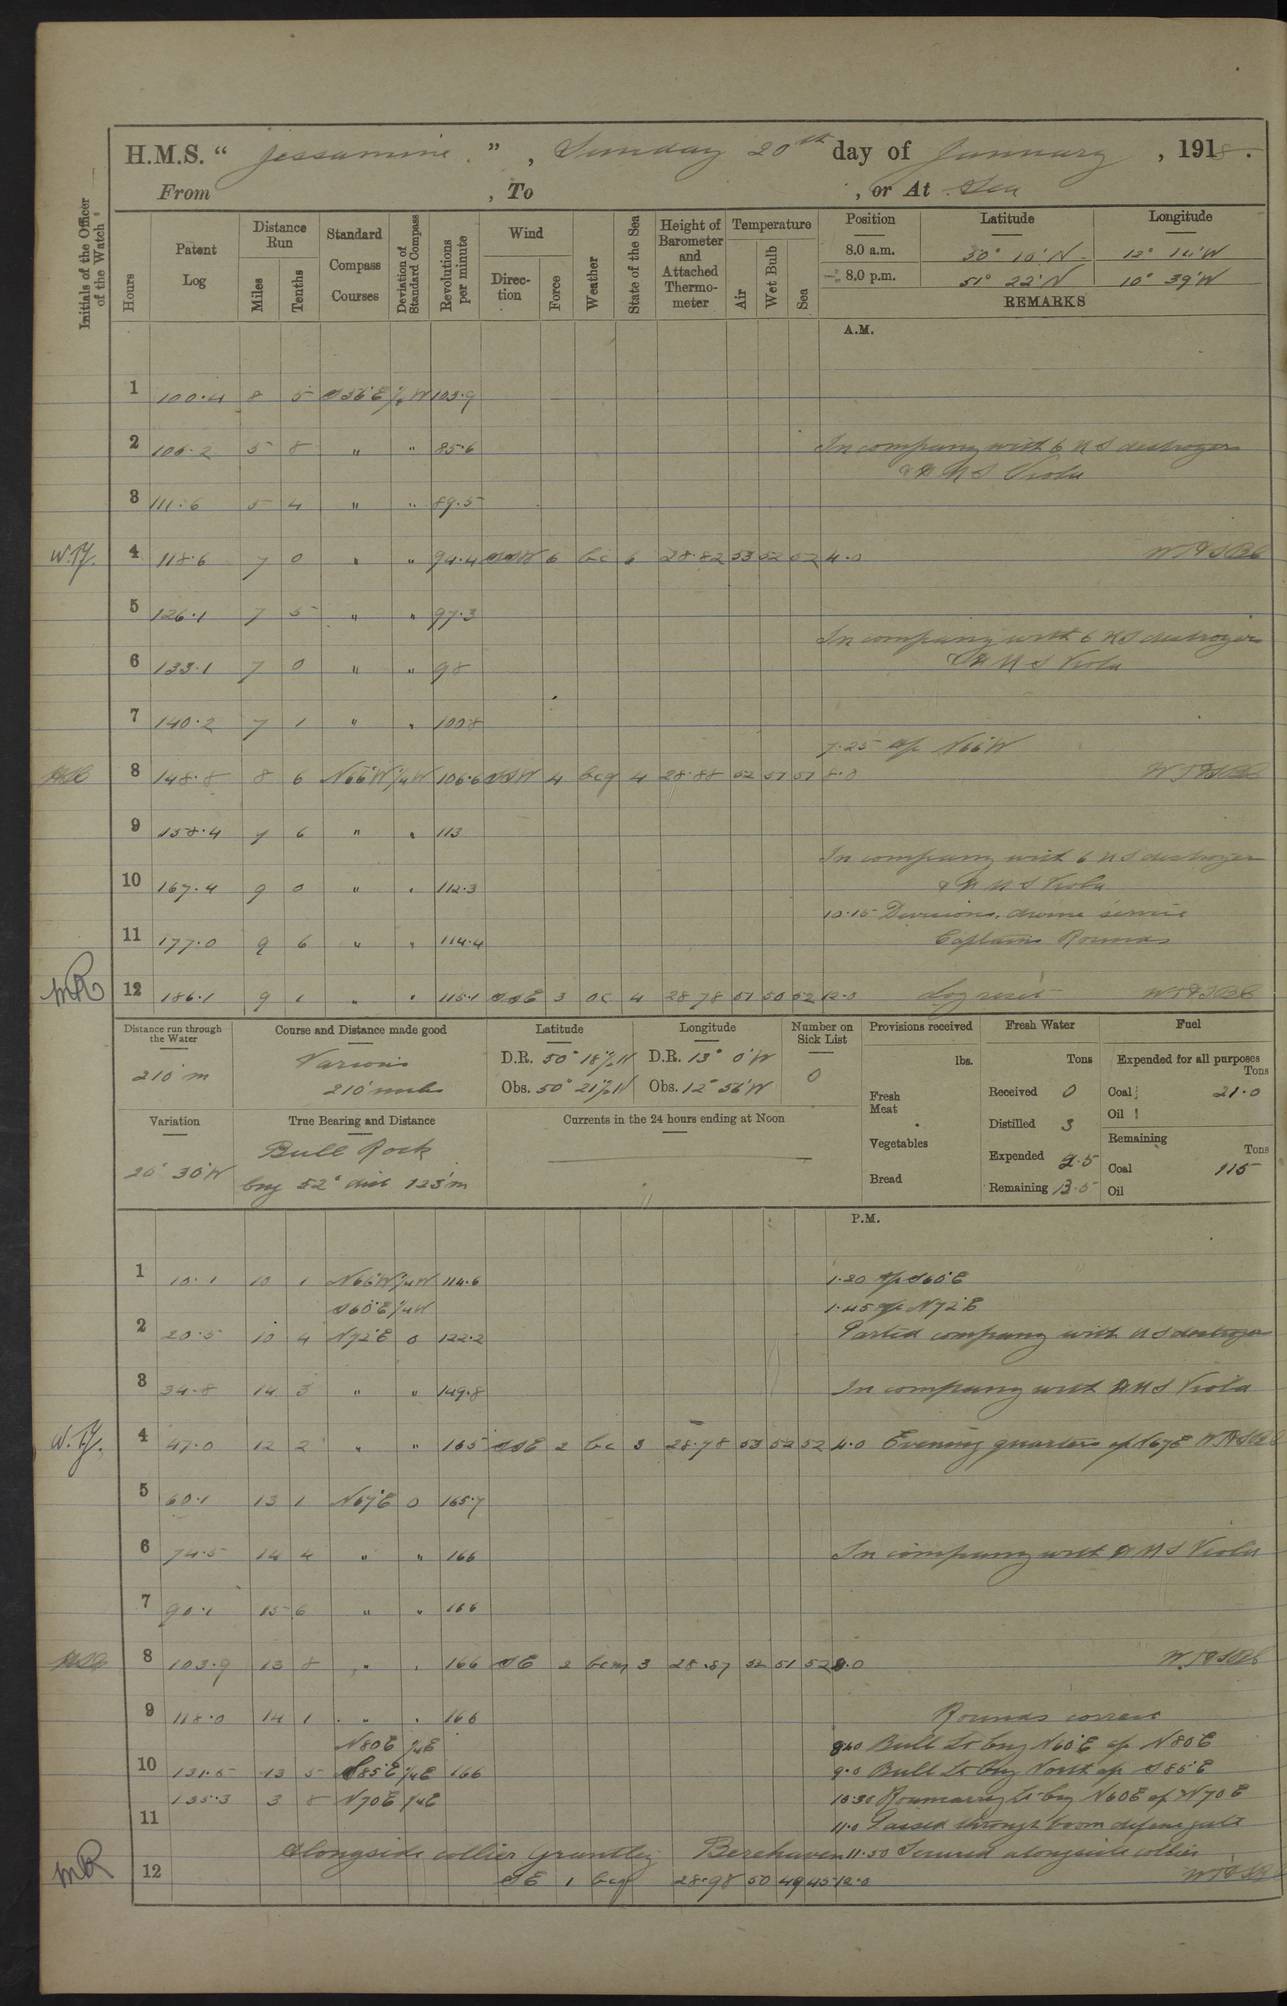 H.M.S. “ Jessamine ” , Sunday 20th day of January , 1918.
From , To , or At Sea
Initials of the Officer of the Watch
Hours
Patent Log
Distance Run
Miles
Tenths
Standard Compass Courses
Deviation of Standard Compass
Revolutions per minute
Wind
Direction
Force
Weather
State of the Sea
Height of Barometer and Attached Thermometer
Temperature
Air
Wet Bulb
Sea
Position Latitude Longitude
8.0 a.m. 50° 10' N 12° 14' W
8.0 p.m. 51° 22' N 10° 39' W
REMARKS
A.M.
1 100.4 8 5 S36°E 103.9
2 106.2 5 8 " " 85.6 In company with 6 US destroyers
& HMS Viola
3 111.6 5 4 " " 89.5
W.T.J. 4 118.6 7 0 " " 94.4 SSW 6 bc 6 28.82 53 52 52 4.0
5 126.1 7 5 " " 97.3
In company with 6 US destroyers
6 133.1 7 0 " " 98 & HMS Viola
7 140.2 7 1 " " 100.8
7.25 a/c N66°W
8 148.8 8 6 N66°W ¼W 106.6 SSW 4 bcq 4 28.88 52 51 51 8.0
9 158.4 9 6 " " 113
In company with 6 US destroyers
10 167.4 9 0 " " 112.3 & HMS Viola
10.15 Divisions, divine service
11 177.0 9 6 " " 114.4 Captains Rounds
MR 12 186.1 9 1 " " 115.1 SSE 3 oc 4 28.78 51 50 52 12.0 Log reset
Distance run through the Water Course and Distance made good Latitude Longitude Number on Sick List Provisions received Fresh Water Fuel
210' m
Various
210 miles
D.R. 50° 18½ N D.R. 13° 0' W
Obs. 50° 21½ N Obs. 12° 56' W
0
lbs. Tons Expended for all purposes Tons
Fresh Meat Received 0 Coal 21.0
Oil
Variation True Bearing and Distance Currents in the 24 hours ending at Noon
Distilled 3 Remaining Tons
20° 30' W
Bull Rock
brg 52° dist 123' m
Vegetables Expended 2.5 Coal 115
Bread Remaining 13.5 Oil
P.M.
1 10.1 10 1 N66°W ¼W 114.6 1.20 a/c S60°E
S60°E ¼W 1.45 a/c N72°E
2 20.5 10 4 N72°E 0 122.2 Parted company with US destroyers
3 34.8 14 3 " " 149.8 In company with HMS Viola
W.T.J. 4 47.0 12 2 " " 165 SSE 2 bc 3 28.78 53 52 52 4.0 Evening quarters a/c N67E
5 60.1 13 1 N67°E 0 165.7
6 74.5 14 4 " " 166 In company with HMS Viola
7 90.1 15 6 " " 166
8 103.9 13 8 " " 166 SE 2 bcm 3 28.87 52 51 52 8.0
9 118.0 14 1 " " 166 Rounds correct
N80E ¼E 8.40 Bull Lt brg N60°E a/c N80°E
10 131.5 13 5 S85°E ¼E 166 9.0 Bull Lt brg North a/c S85°E
135.3 3 8 N70E ¼E 10.30 Roancarrig Lt brg N60E a/c N70E
11 11.0 Passed through boom defence gate
Alongside collier Grantley Berehaven 11.50 Secured alongside collier
MR 12 SE 1 bcq 28.98 50 49 45 12.0